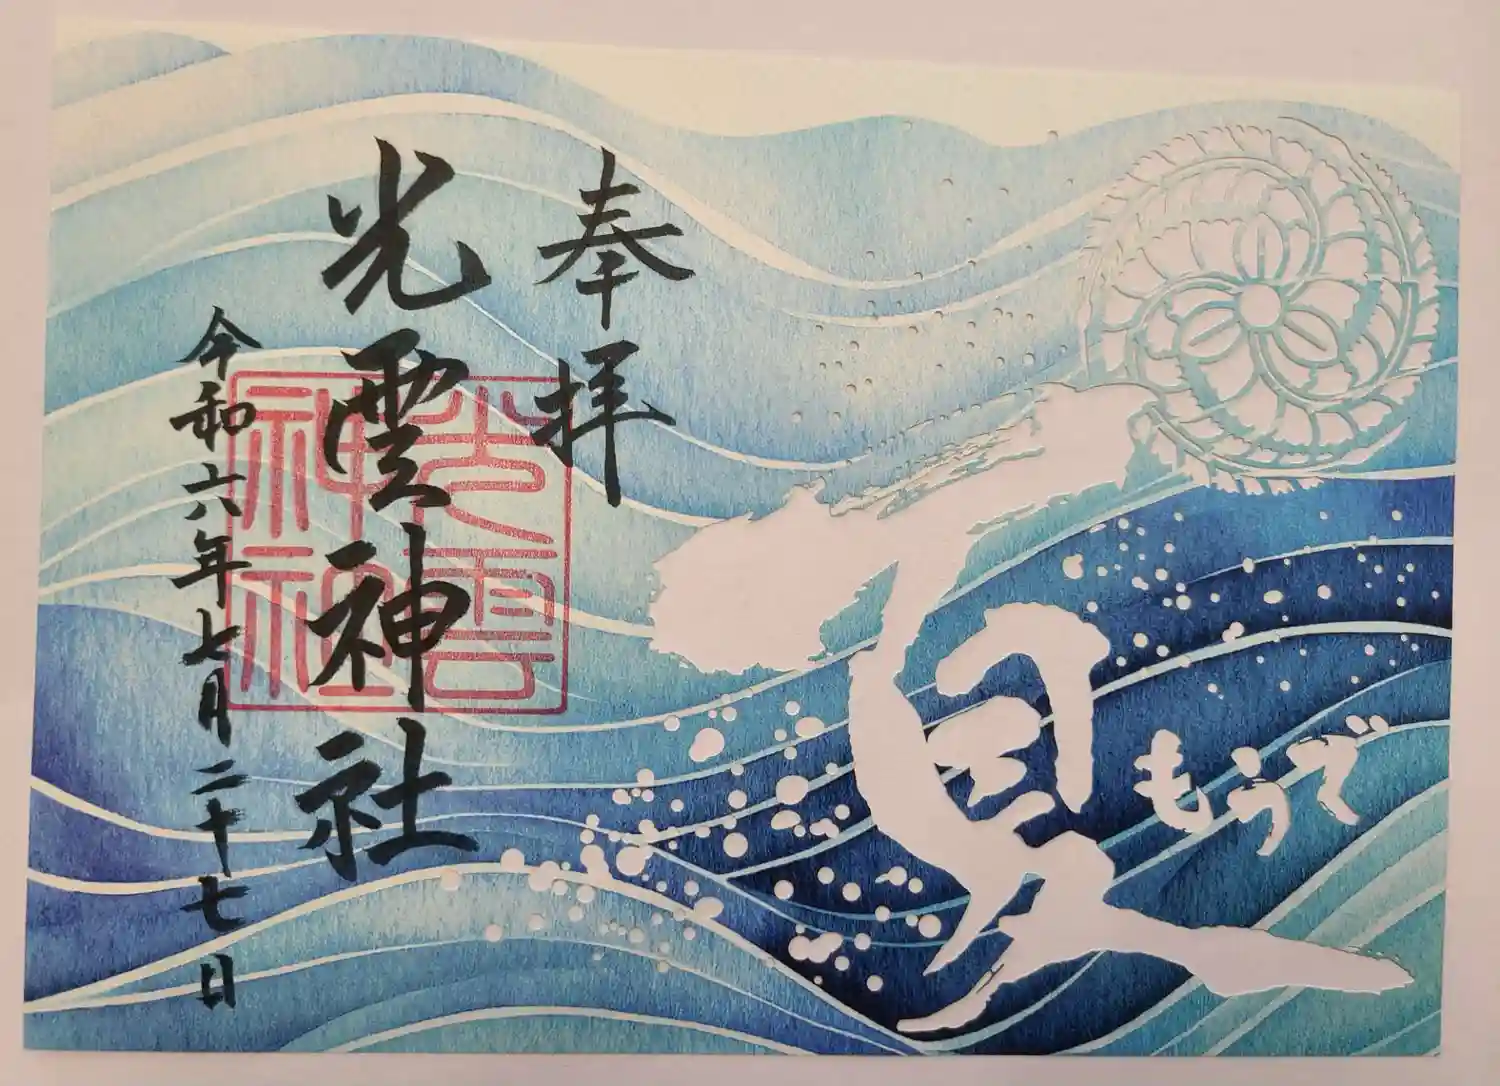 夏もうで
奉拝
光雲神社
光雲
神社
令和六年七月二十七日